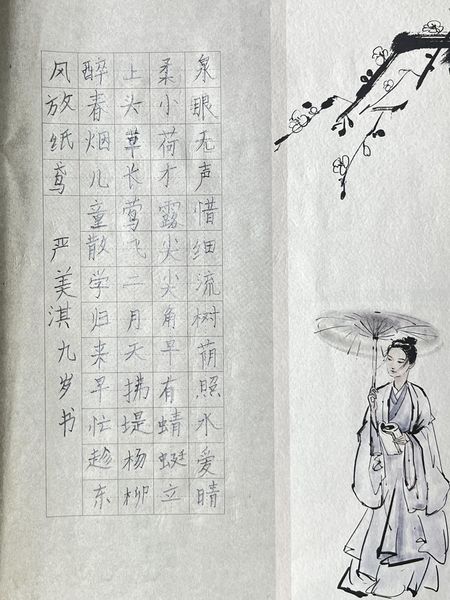 泉眼无声惜细流树荫照水爱晴
柔小荷才露尖尖角早有蜻蜓立
上头草长莺飞二月天拂堤杨柳
醉春烟儿童散学归来早忙趁东
风放纸鸢 严美淇九岁书